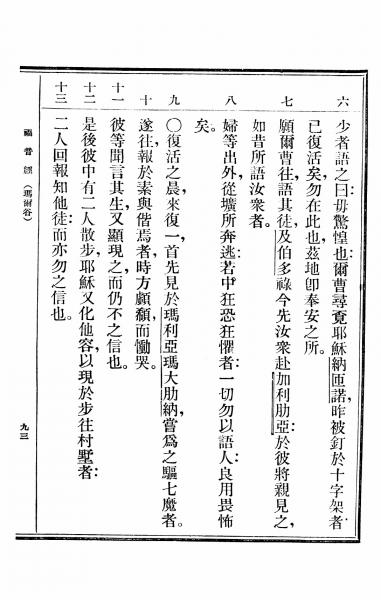 六 少者語之曰毋驚惶也爾曹尋覓耶穌納匝諾,昨被釘於十字架者
已復活矣勿在此也茲地卽奉安之所。
七 願爾曹往語其徒及伯多祿今先汝衆赴加利肋亞:於彼將親見之,
如昔所語汝衆者。
八 婦等出外,從壙所奔逃:若中狂恐狂懼者:一切勿以語人:良用畏怖
矣。
九 〇復活之晨,來復一,首先見於瑪利亞瑪大肋納,嘗爲之驅七魔者。
十 遂往報於素與偕焉者,時方顣顑而慟哭。
十一 彼等聞言其生,又顯現之而仍不之信也。
十二 是後彼中有二人散步,耶穌又化他容,以現於步往村墅者:
十三 二人回報知他徒:而亦勿之信也。
福音經 (瑪爾谷)
九三